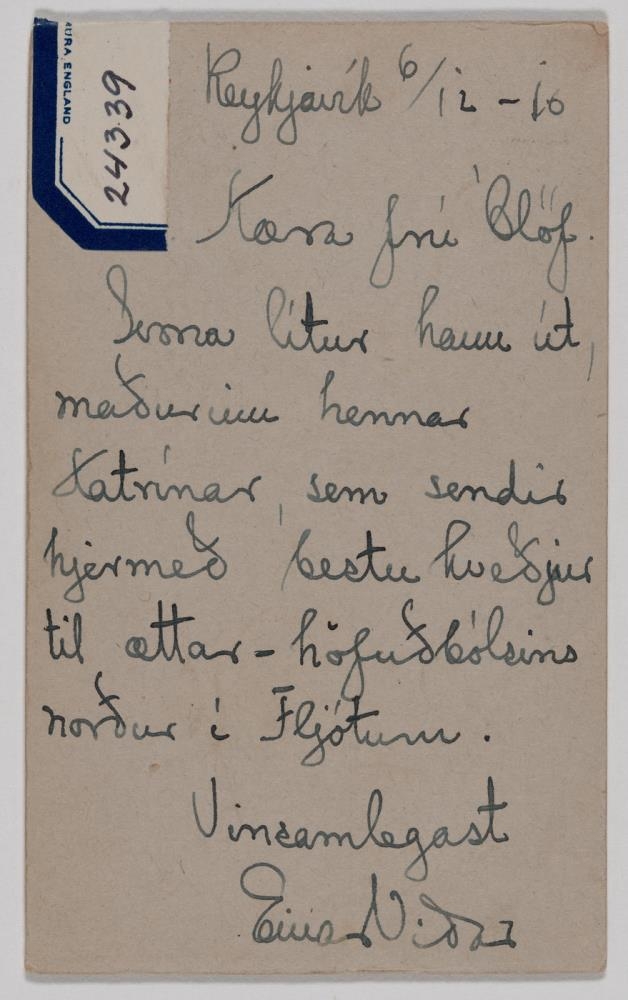 URA, ENGLAND
24339
Reykjavík 6/12 - 10
Kæra frú Ólöf.
Svona lítur hann út,
maðurinn hennar
Katrínar, sem sendir
hjermeð bestu kveðjur
til ættar-höfuðbólsins
norður í Fljótum.
Vinsamlegast
Einar Viðar